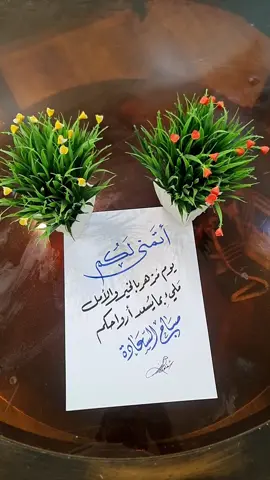 أتمنى لكم
يوم مزهر بالخير والأمل
مليء بما يسعد أرواحكم
صباح السعادة